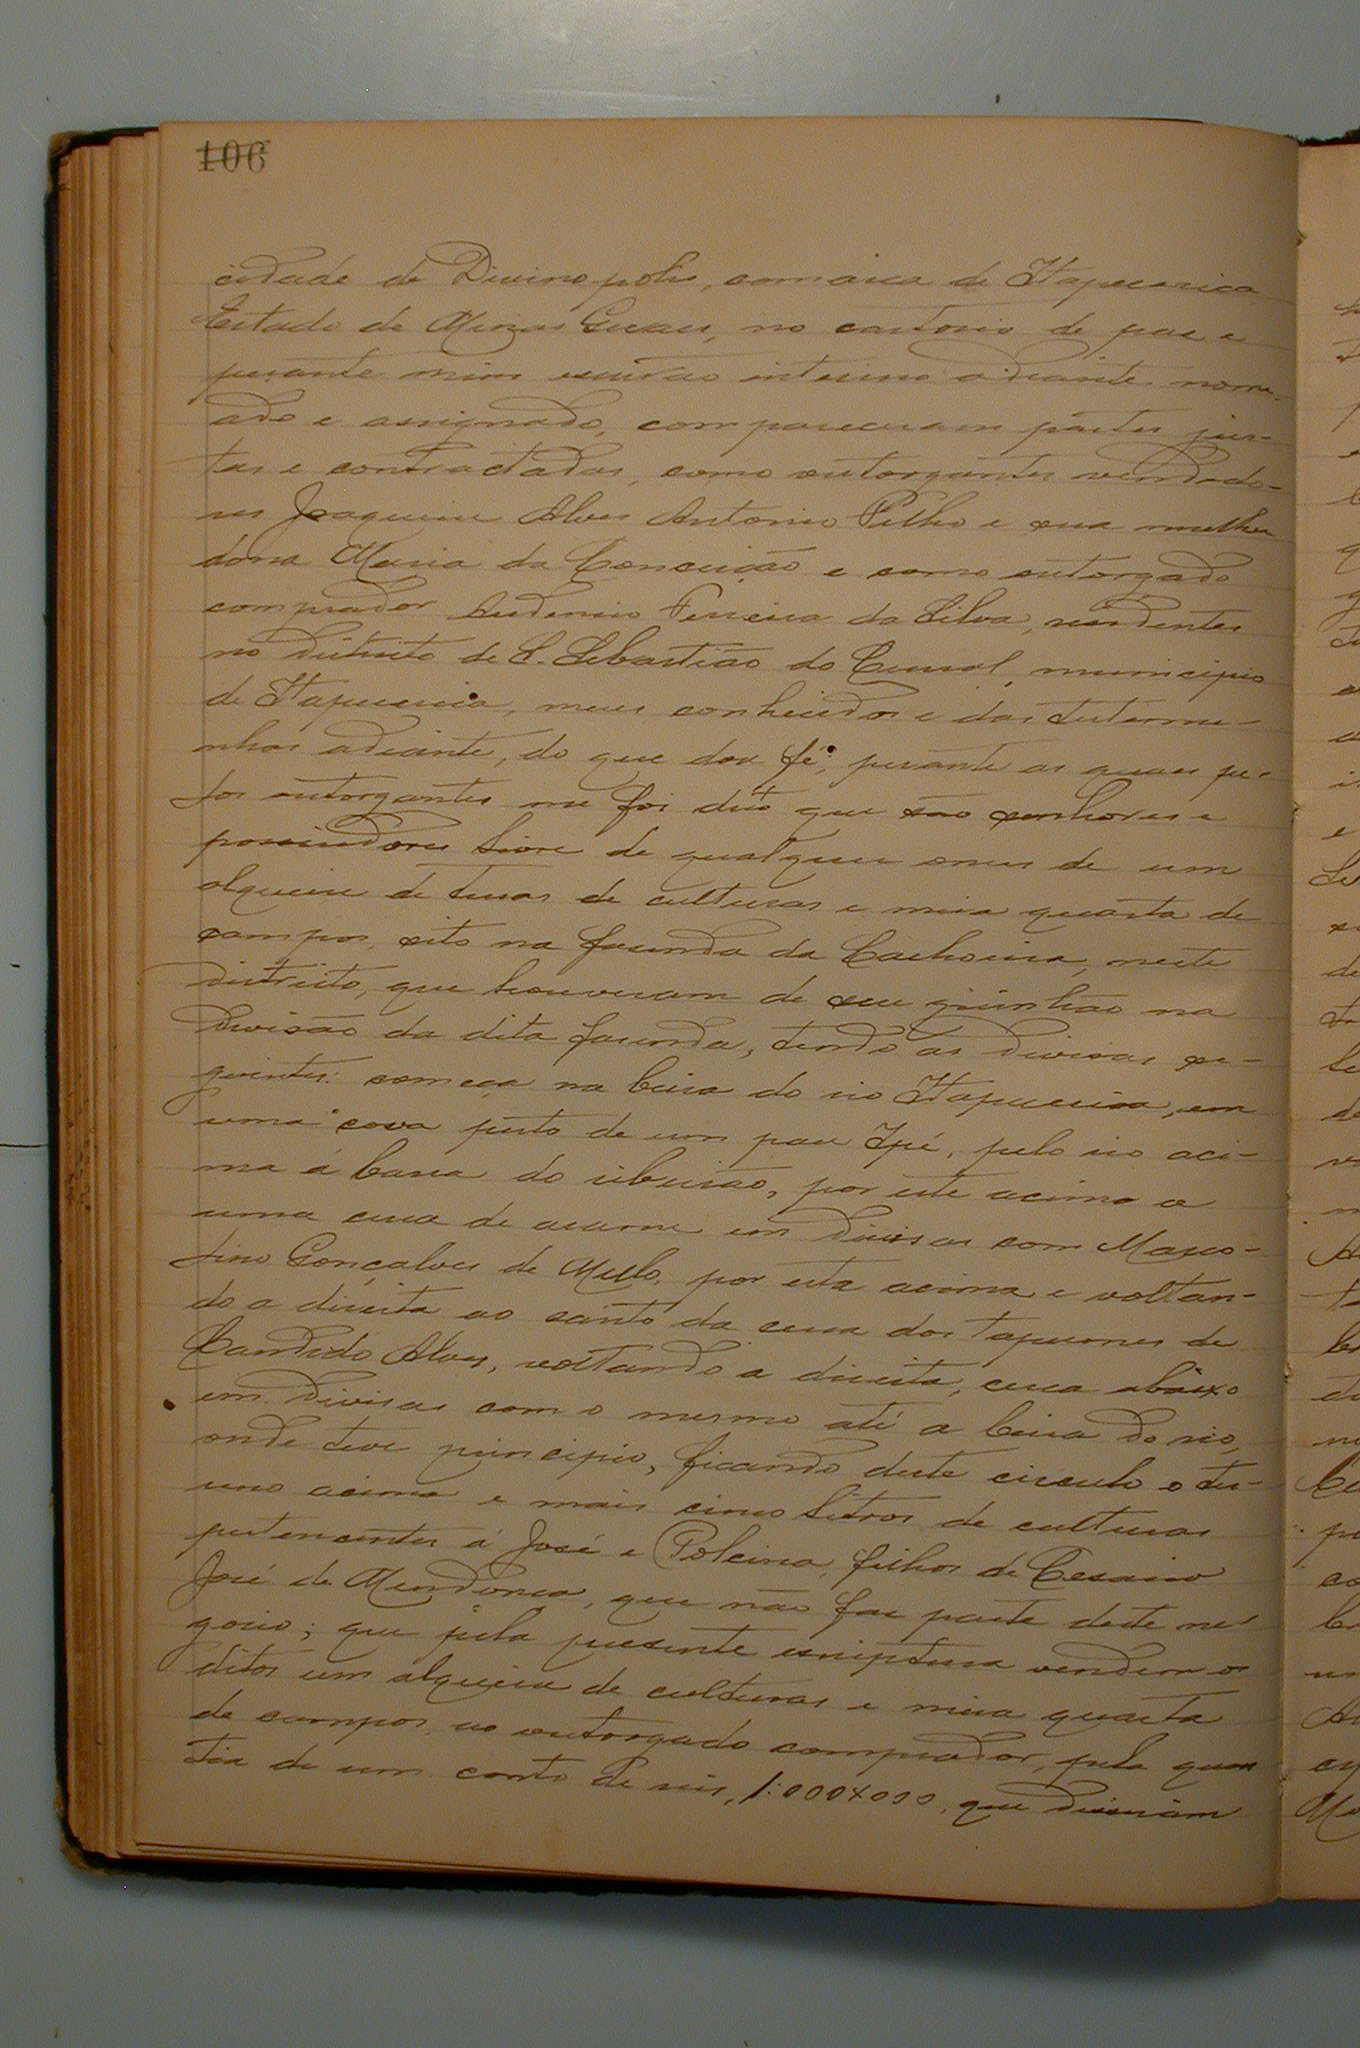 106
cidade de Divinopolis, comarca de Itapecerica
Estado de Minas Geraes, no cartorio de paz e
perante mim escrivão interino adiante nome-
ado e assignado, compareceram partes jus-
tas e contractadas, como outorgantes vendedo-
res Joaquim Alves Antonio Filho e sua mulher
dona Maria da Conceição e como outorgado
comprador Eudemio Ferreira da Silva, residentes
no distrito de S. Sebastião do Curral, municipio
de Itapecerica, meus conhecidos e das testemu-
nhas adiante, do que dou fé; perante as quaes pe-
los outorgantes me foi dito que são senhores e
possuidores livre de qualquer onus de um
alqueire de terras de culturas e meia quarta de
campos, sito na fasenda da Cachoeira, neste
districto, que houveram de seu quinhão na
divisão da dita fasenda, tendo as divisas se-
guintes: começa na beira do rio Itapecerica, em
uma cova perto de um pau Ipé, pelo rio aci-
ma á barra do ribeirão, por este acima a
uma cerca de arame em divisas com Marco-
lino Gonçalves de Mello, por esta acima e voltan-
do a direita ao canto da cerca dos tapumes de
Candido Alves, voltando a direita, cerca abaixo
em divisas com o mesmo até a beira do rio,
onde teve principio, ficando deste circulo o ter-
reno acima e mais cinco litros de culturas
pertencentes á José e Polcina, filhos de Cesario
José de Mendonca, que não faz parte deste ne-
gocio; que pela presente escriptura vendem os
ditos um alqueire de culturas e meia quarta
de campos, ao outorgado comprador, pela quan
tia de um conto de reis, 1:000$000, que disseram